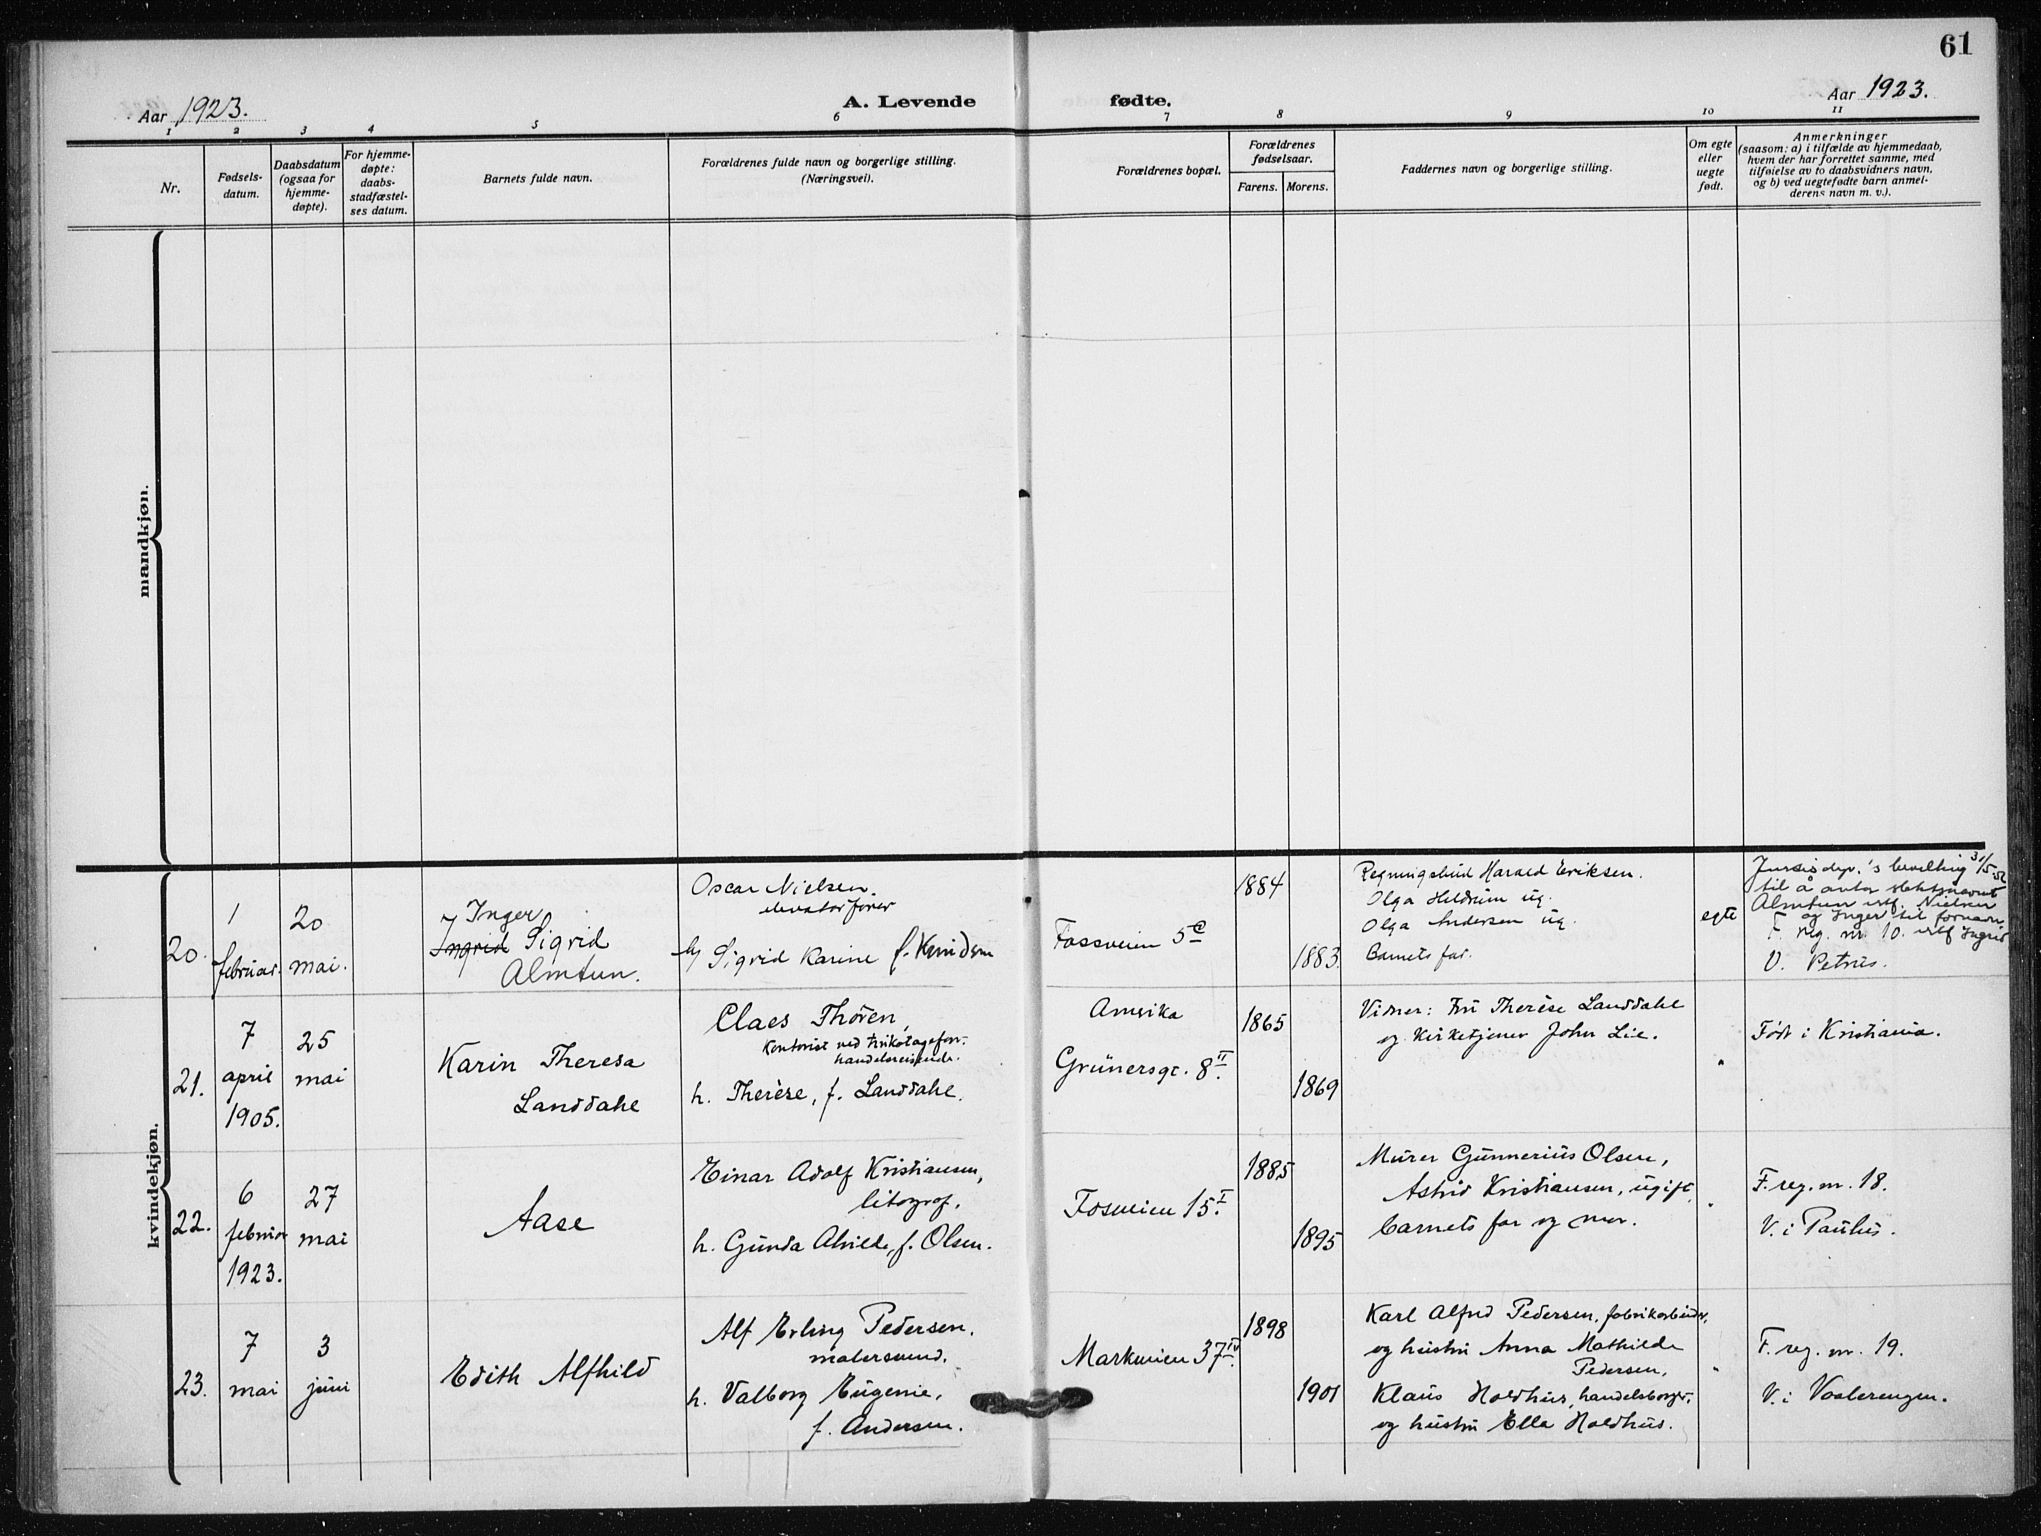 61
Aar 1923.
A. Levende
fødte.
Aar 1923.
1
2
3
4
5
6
7
8
9
10
11
Nr.
Fødsels-
datum.
Daabsdatum
(ogsaa for
hjemme-
døpte).
For hjemme-
døpte:
daabs-
stadfæstel-
ses datum.
Barnets fulde navn.
Forældrenes fulde navn og borgerlige stilling.
(Næringsvei).
Forældrenes bopæl.
Forældrenes
fødselsaar.
Farens.
Morens.
Faddernes navn og borgerlige stilling.
Om egte
eller
uegte
født.
Anmerkninger
(saasom: a) i tilfælde av hjemmedaab,
hvem der har forrettet samme, med
tilføielse av to daabsvidners navn,
og b) ved uegtefødte barn anmel-
derens navn m. v.).
mandkjøn.
kvindekjøn.
20.
1
februar.
20
mai.
Inger
Ingrid Sigrid
Almtun.
Oscar Nielsen.
elevatorfører
h/ Sigrid Karine f. Knudsen
Fossveien 5c
1884
1883.
Regningsbud Harald Eriksen.
Olga Hildrum ug.
Olga Andersen ug.
Barnets far.
egte
Justisdep.'s bevilling 31/5-52
til å anta slektsnavnet
Almtun istf. Nielsen
og Inger til fornavn
F. reg. nr. 10. istf Ingrid
V. Petrus.
21.
7
april
1905.
25
mai
Karin Theresa
Landdahl
Claes Thorén,
handelsreisende.
h. Therése, f. Landdahl.
Amerika
Grünersgt. 8 II.
1865
1869
Vidner: Fru Therèse Landdahl
og kirketjener John Lie.
"
Født i Kristiania.
22.
6
februar
1923.
27
mai
Aase
Einar Adolf Kristiansen,
litograf.
h. Gunda Alvilde, f. Olsen.
Fosveien 15 I.
1885
1895
Murer Gunnerius Olsen,
Astrid Kristiansen, ugift,
barnets far og mor.
"
F. reg. nr. 18.
V. i Paulus.
23.
7
mai
3
juni
Edith Alfhild
Alf Erling Pedersen.
malersvend.
h. Valborg Eugenie,
f. Andersen.
Markveien 37 IV.
1898
1901
Karl Alfred Pedersen, fabrikarbeider,
og hustru Anna Mathilde
Pedersen,
Klaus Holdhus, handelsborger,
og hustru Ella Holdhus.
"
F. reg. nr. 19.
V. i Vaalerengen.